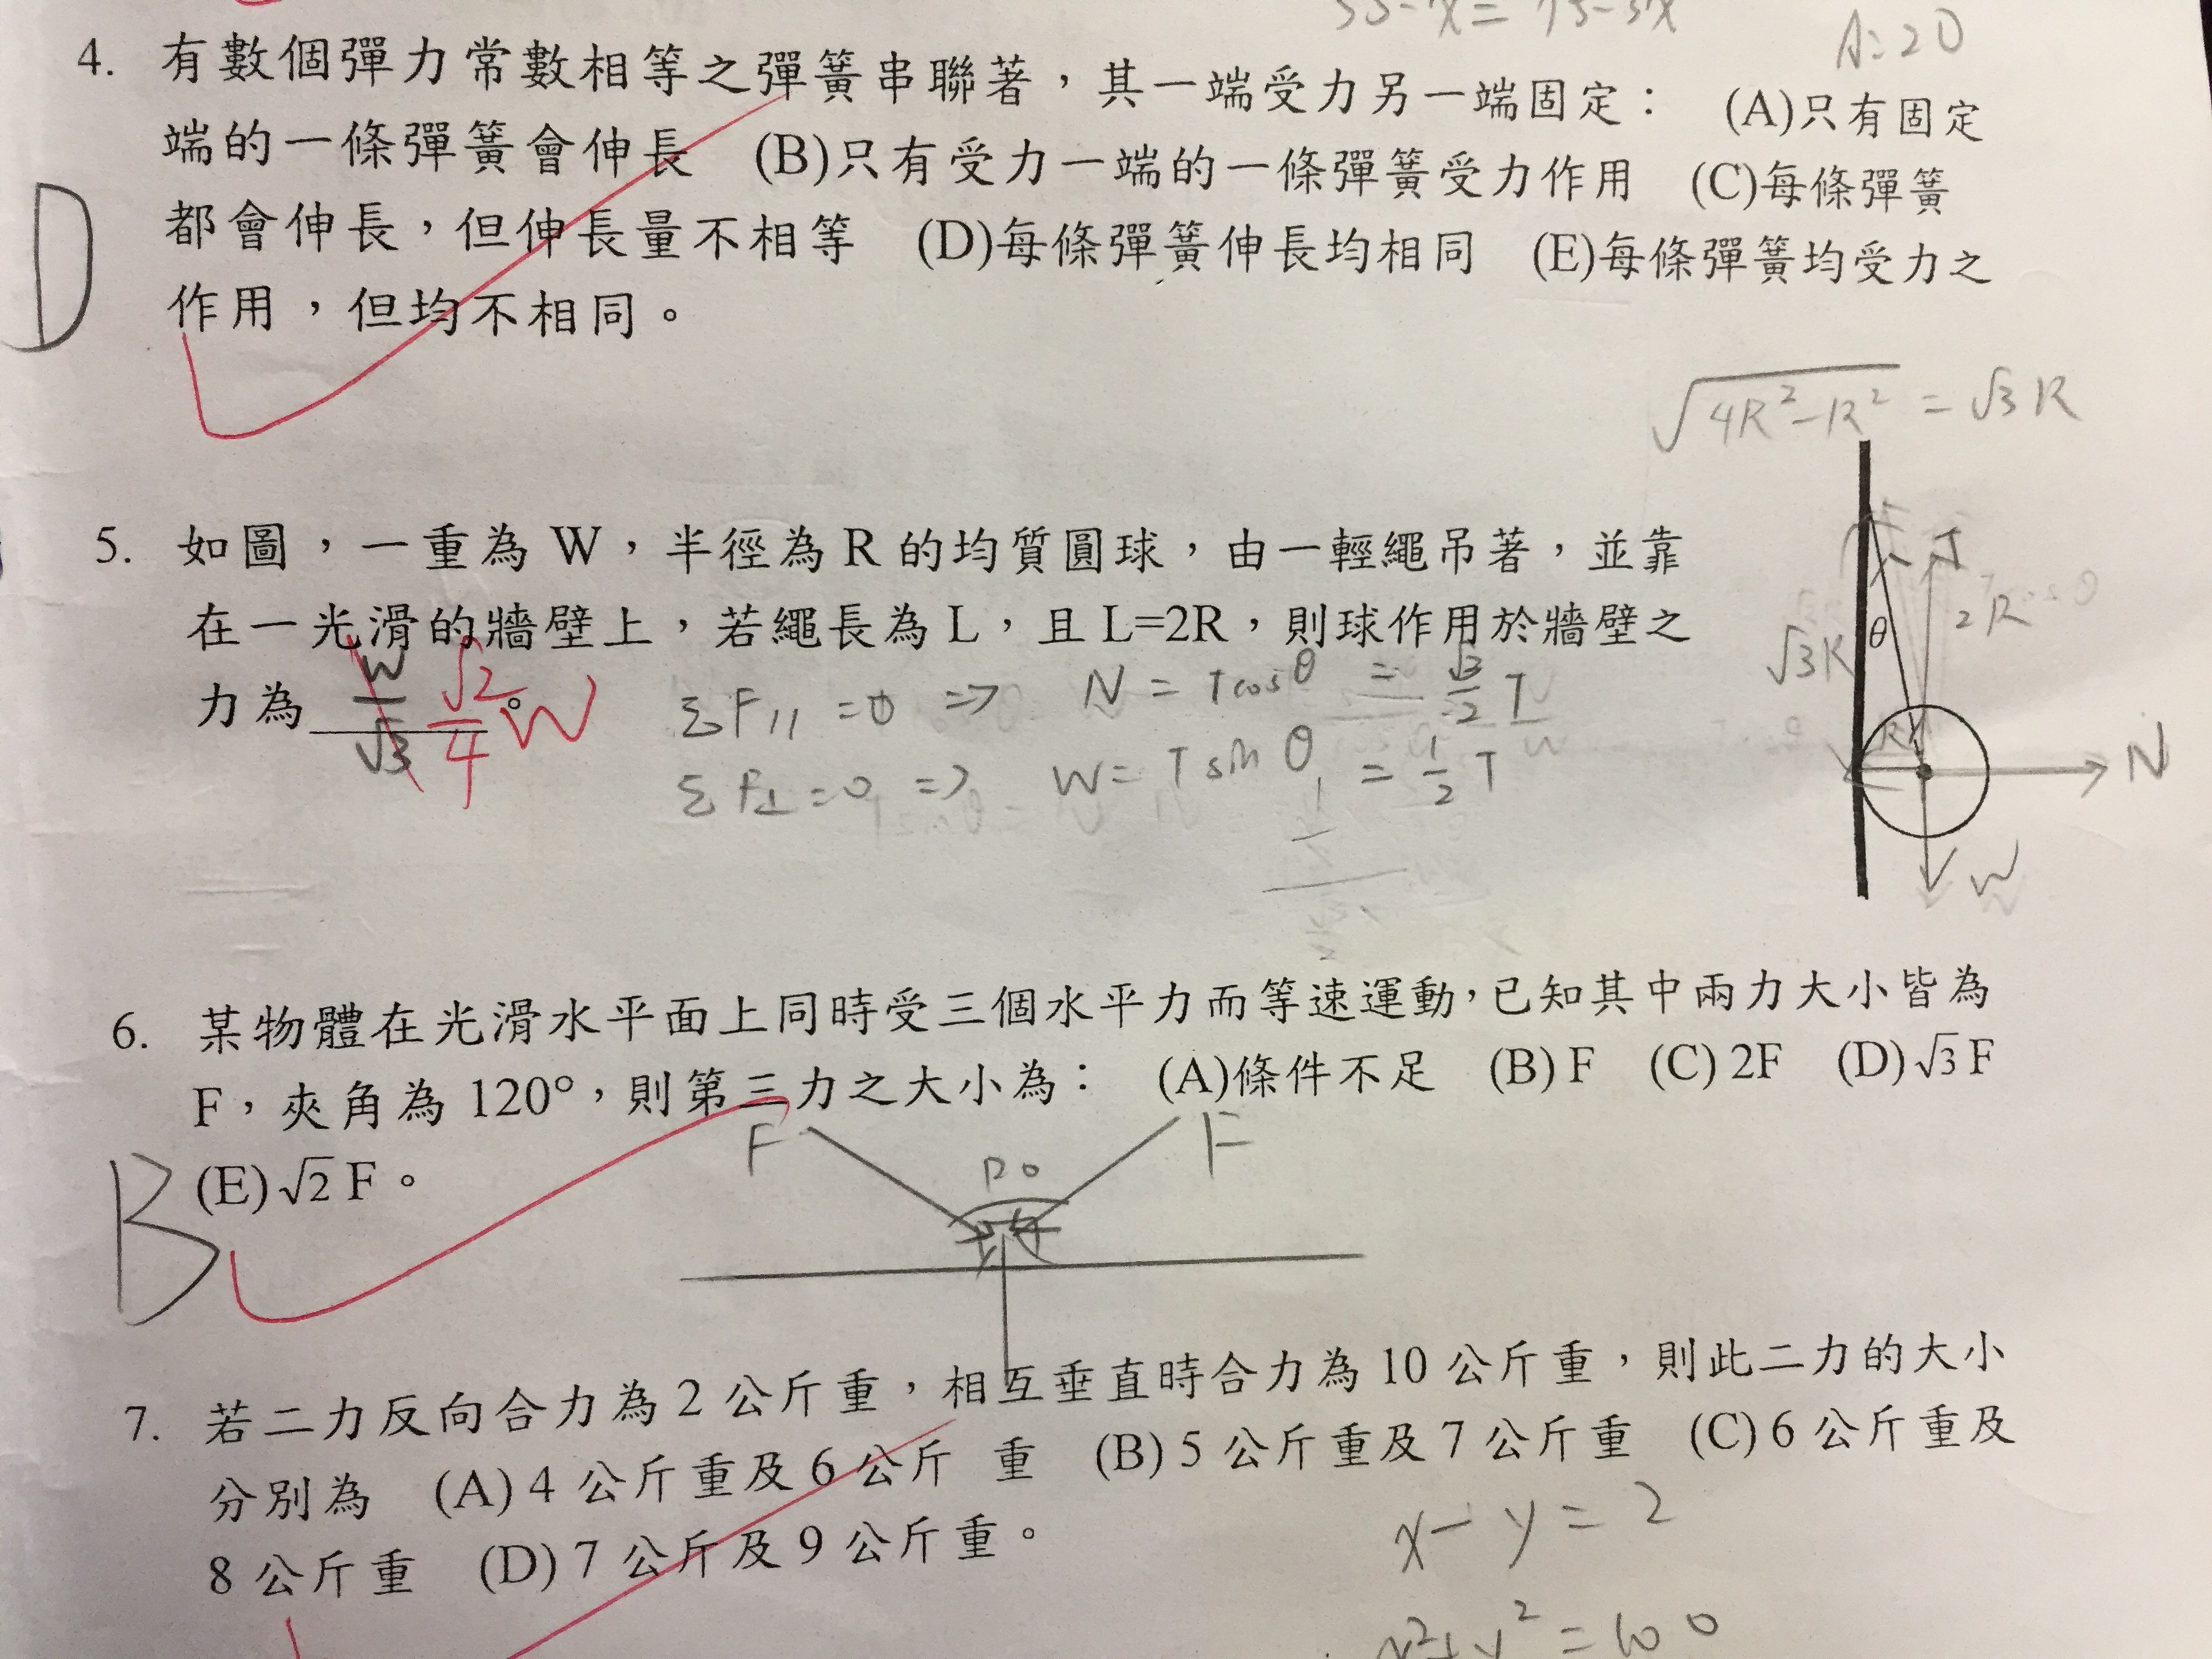 35-x = 75-3x
A=20
4. 有數個彈力常數相等之彈簧串聯著，其一端受力另一端固定： (A)只有固定
端的一條彈簧會伸長 (B)只有受力一端的一條彈簧受力作用 (C)每條彈簧
都會伸長，但伸長量不相等 (D)每條彈簧伸長均相同 (E)每條彈簧均受力之
作用，但均不相同。
D
√(4R²-R²) = √3R
5. 如圖，一重為 W，半徑為 R 的均質圓球，由一輕繩吊著，並靠
在一光滑的牆壁上，若繩長為 L，且 L=2R，則球作用於牆壁之
力為 W/√3 √2/4 W。
ΣF// = 0 => N = Tcosθ = √3/2 T
ΣF⊥ = 0 => W = T sinθ = 1/2 T
T
θ
2R
√3R
R
N
W
6. 某物體在光滑水平面上同時受三個水平力而等速運動，已知其中兩力大小皆為
F，夾角為 120°，則第三力之大小為： (A)條件不足 (B) F (C) 2F (D)√3 F
(E)√2 F。
B
F
120
F
7. 若二力反向合力為 2 公斤重，相互垂直時合力為 10 公斤重，則此二力的大小
分別為 (A) 4 公斤重及 6 公斤 重 (B) 5 公斤重及 7 公斤重 (C) 6 公斤重及
8 公斤重 (D) 7 公斤及 9 公斤重。
x-y=2
x²+y²=100